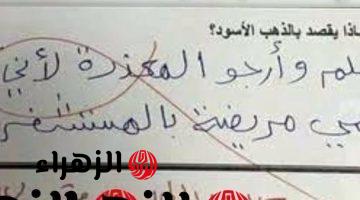 ماذا يقصد بالذهب الأسود؟
لم وأرجو المعذرة لأني
مريضة بالمستشفى
الزهراء